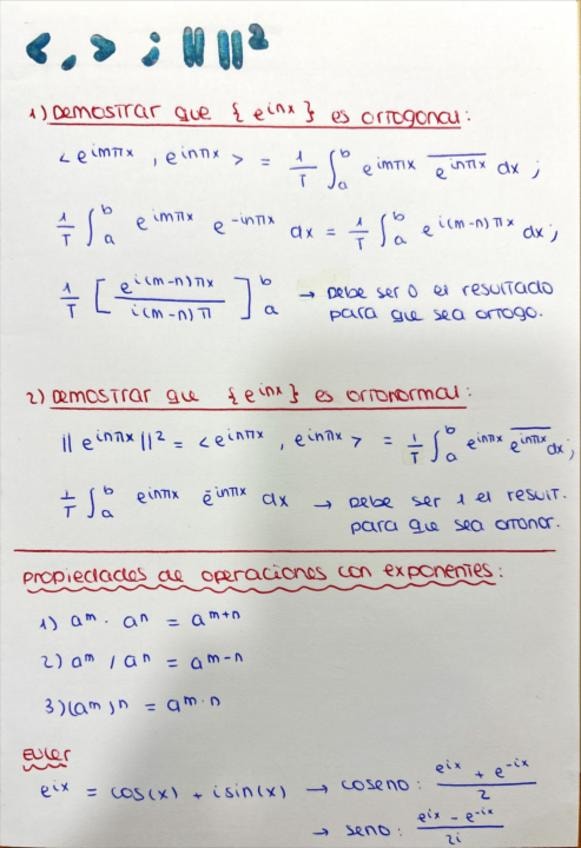 < , > ; || ||²
1) Demostrar que {e^inx} es ortogonal:
<e^imπx , e^inπx> = 1/T ∫_a^b e^imπx \overline{e^inπx} dx ;
1/T ∫_a^b e^imπx e^-inπx dx = 1/T ∫_a^b e^i(m-n)πx dx ;
1/T [ e^i(m-n)πx / i(m-n)π ]_a^b → Debe ser 0 el resultado
para que sea ortogo.
2) Demostrar que {e^inx} es ortonormal:
||e^inπx||² = <e^inπx , e^inπx> = 1/T ∫_a^b e^inπx \overline{e^inπx} dx ;
1/T ∫_a^b e^inπx e^-inπx dx → Debe ser 1 el result.
para que sea ortonor.
propiedades de operaciones con exponentes:
1) a^m · a^n = a^m+n
2) a^m / a^n = a^m-n
3) (a^m)^n = a^m·n
Euler
e^ix = cos(x) + isin(x) → coseno: (e^ix + e^-ix)/2
→ seno: (e^ix - e^-ix)/2i